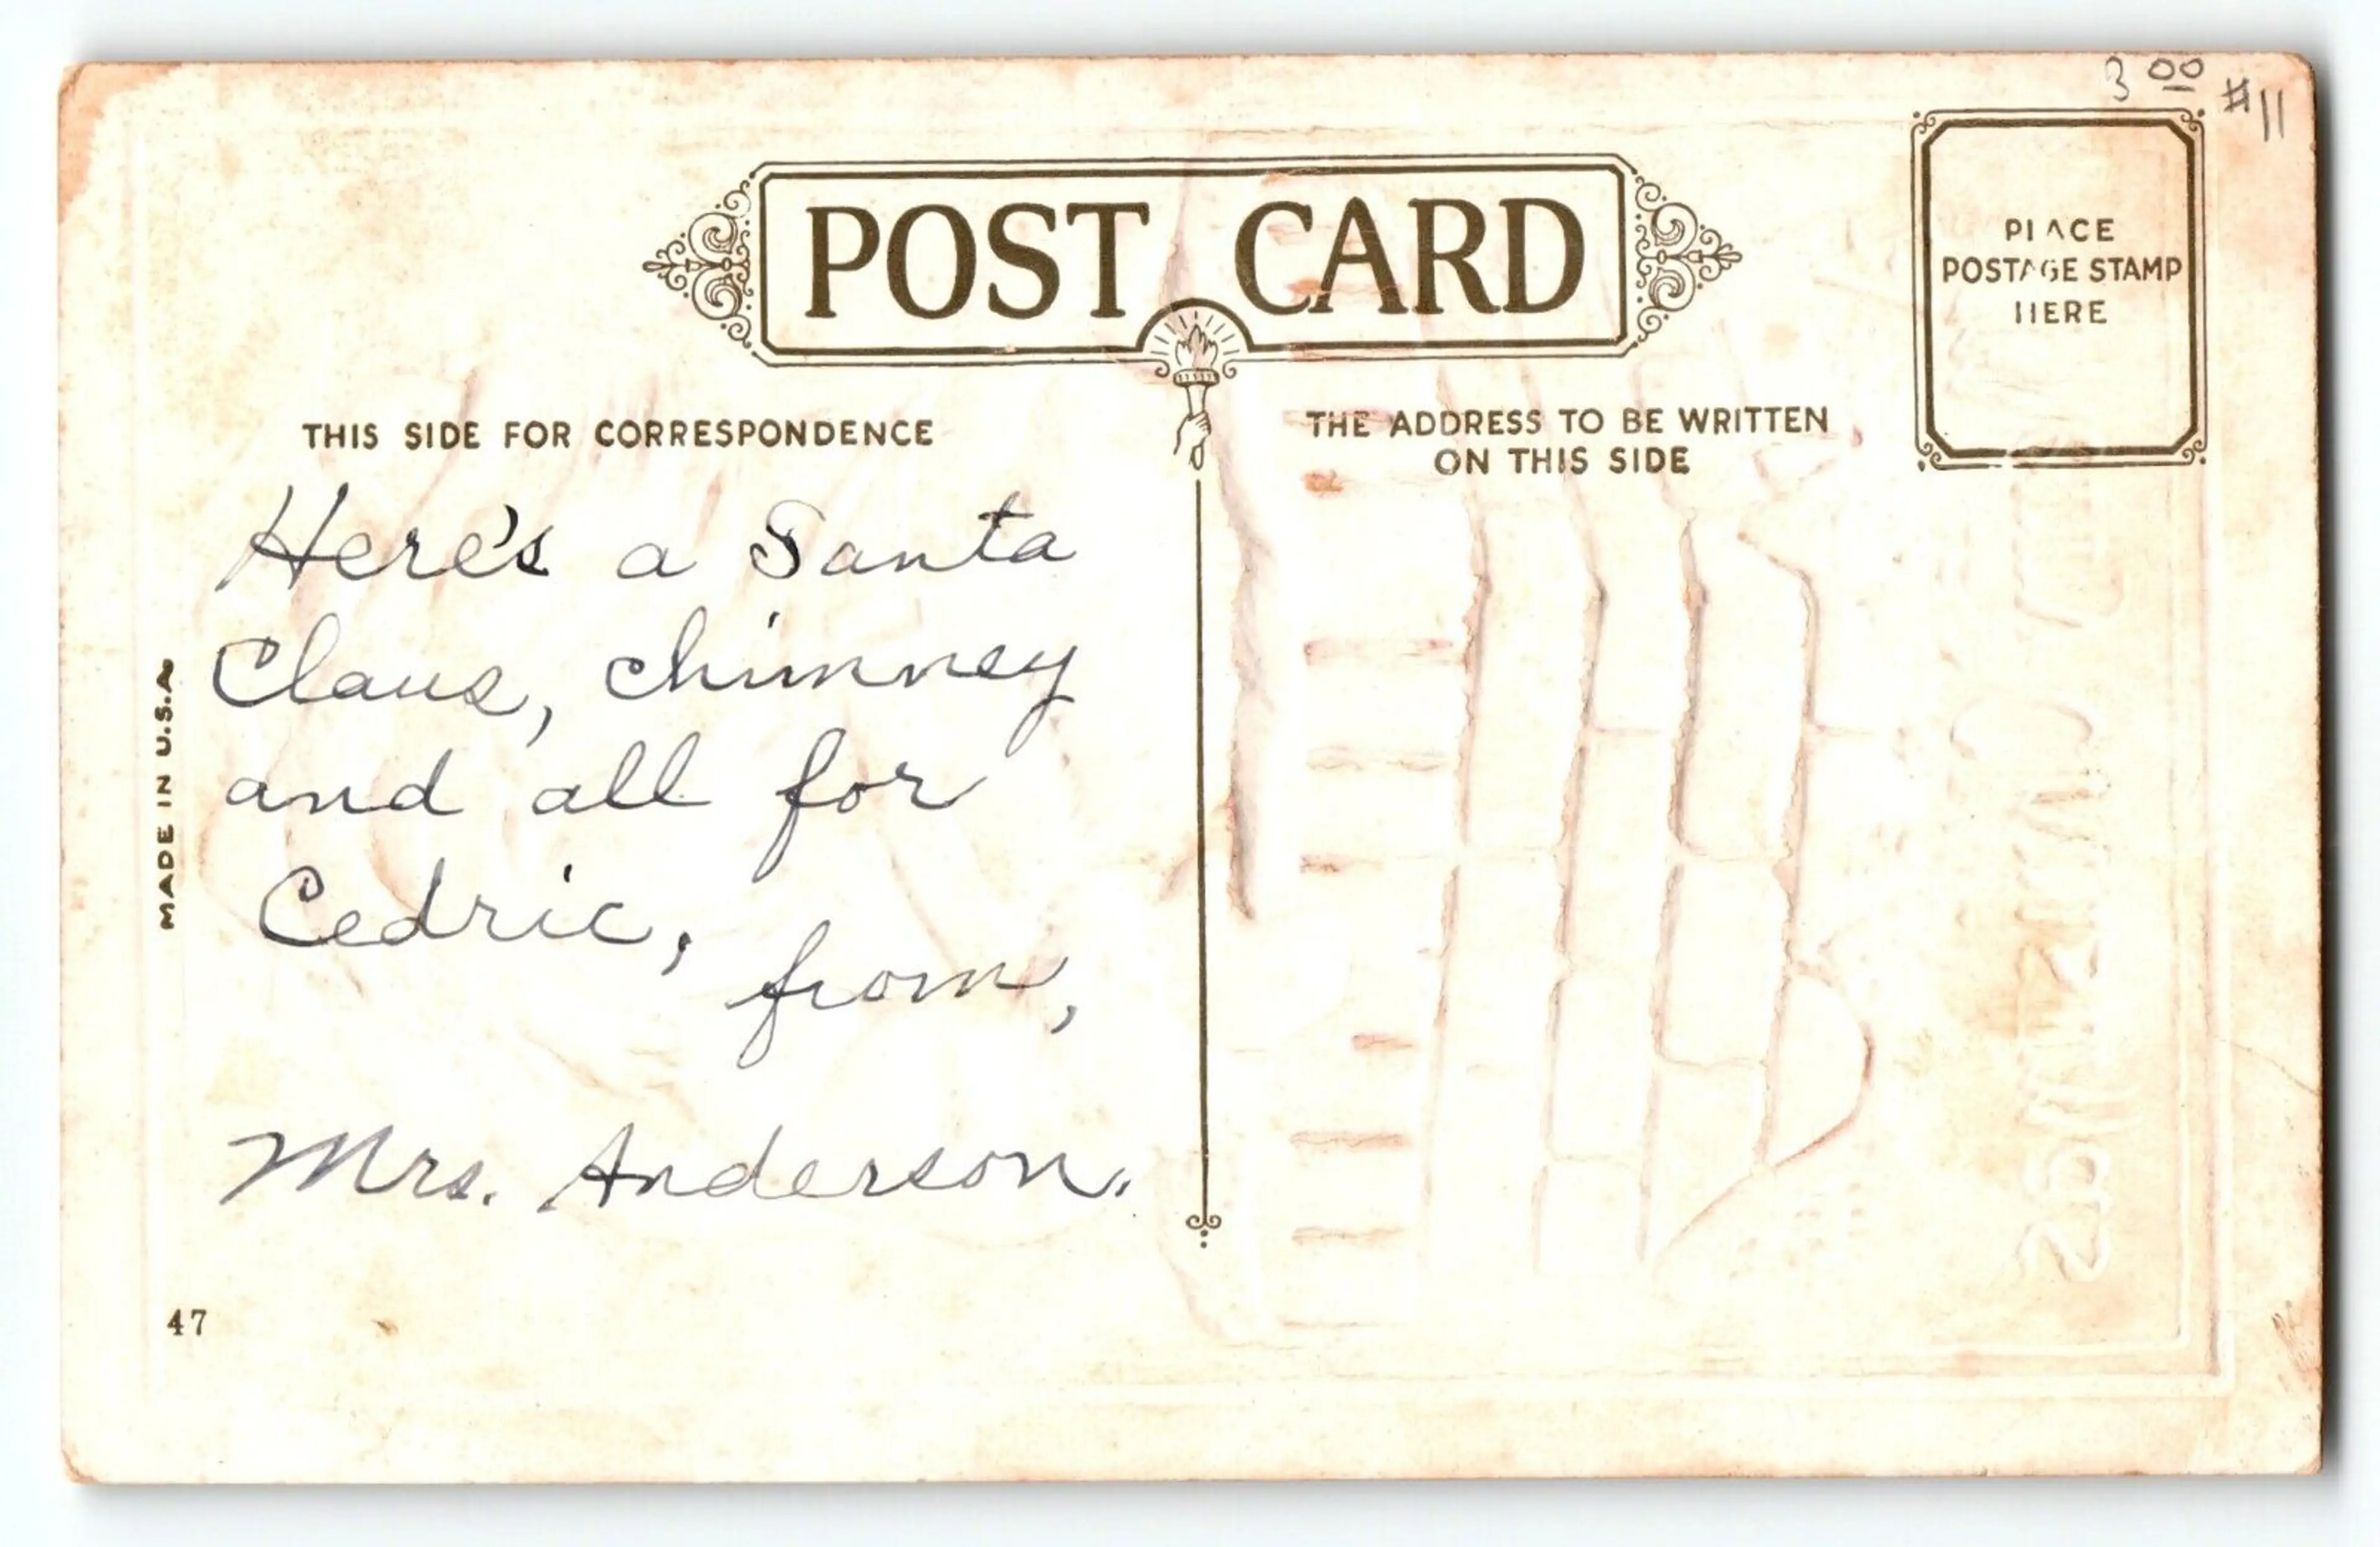 3 00 #11
POST CARD
PLACE
POSTAGE STAMP
HERE
THIS SIDE FOR CORRESPONDENCE
THE ADDRESS TO BE WRITTEN
ON THIS SIDE
Here's a Santa
Claus, chimney
and all for
Cedric,
from,
Mrs. Anderson.
MADE IN U.S.A.
47